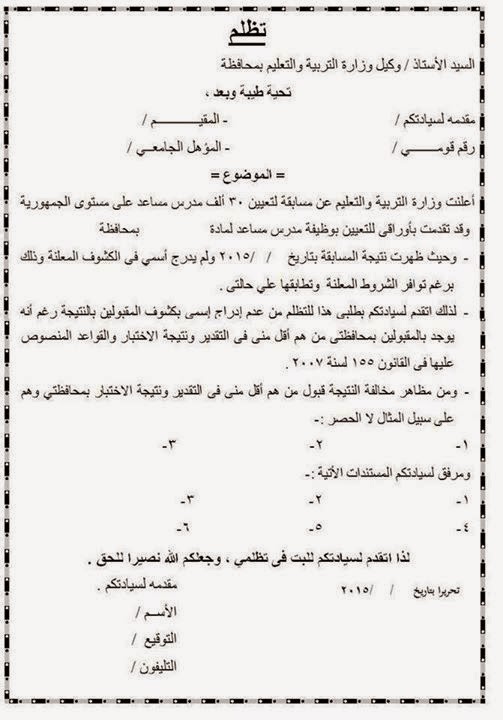 تظلم
السيد الأستاذ / وكيل وزارة التربية والتعليم بمحافظة
تحية طيبة وبعد ،
مقدمه لسيادتكم / - المقيـــــــــم /
رقم قومـــــي / - المؤهل الجامعـي /
= الموضوع =
أعلنت وزارة التربية والتعليم عن مسابقة لتعيين ٣٠ ألف مدرس مساعد على مستوى الجمهورية
وقد تقدمت بأوراقى للتعيين بوظيفة مدرس مساعد لمادة بمحافظة
- وحيث ظهرت نتيجة المسابقة بتاريخ / /٢٠١٥ ولم يدرج أسمي فى الكشوف المعلنة وذلك
برغم توافر الشروط المعلنة وتطابقها علي حالتى .
- لذلك اتقدم لسيادتكم بطلبى هذا للتظلم من عدم إدراج إسمى بكشوف المقبولين بالنتيجة رغم أنه
يوجد بالمقبولين بمحافظتى من هم أقل منى فى التقدير ونتيجة الاختبار والقواعد المنصوص
عليها فى القانون ١٥٥ لسنة ٢٠٠٧ .
- ومن مظاهر مخالفة النتيجة قبول من هم أقل منى فى التقدير ونتيجة الاختبار بمحافظتي وهم
على سبيل المثال لا الحصر :-
١- ٢- ٣-
ومرفق لسيادتكم المستندات الأتية :-
١- ٢- ٣-
٤- ٥- ٦-
لذا اتقدم لسيادتكم للبت فى تظلمي ، وجعلكم الله نصيرا للحق .
تحريرا بتاريخ / / ٢٠١٥ مقدمه لسيادتكم .
الأســم /
التوقيع /
التليفون /